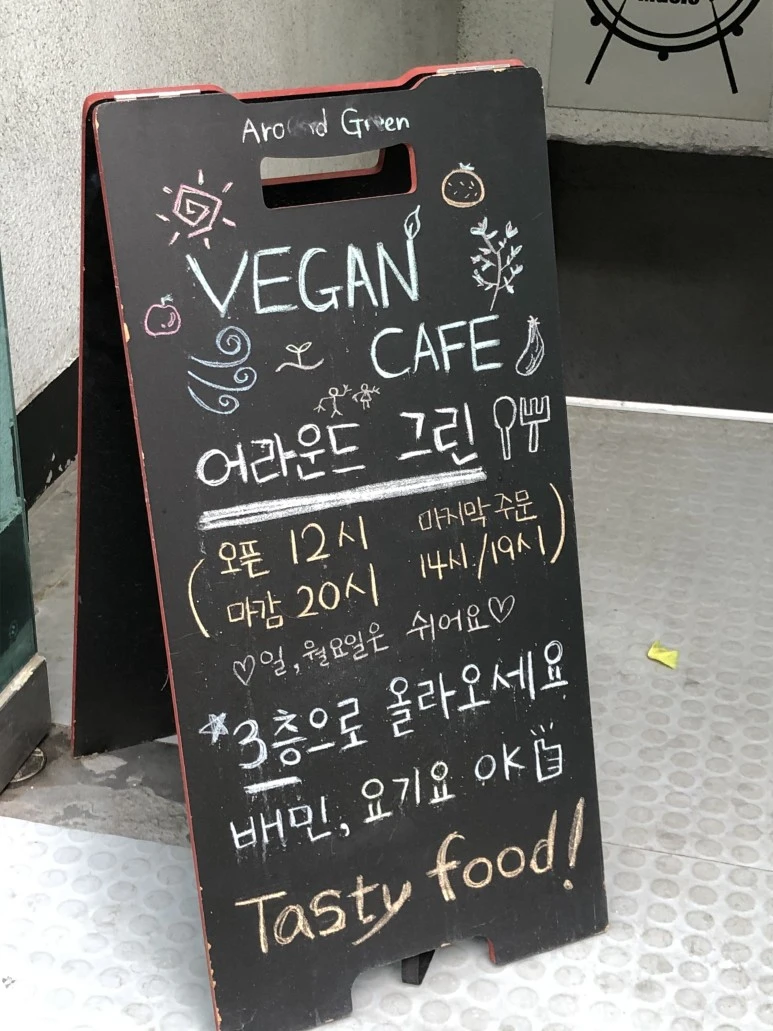 Around Green
VEGAN
CAFE
어라운드 그린
(오픈 12시 마지막 주문
마감 20시 14시/19시)
♡일,월요일은 쉬어요♡
☆3층으로 올라오세요
배민, 요기요 OK
Tasty food!